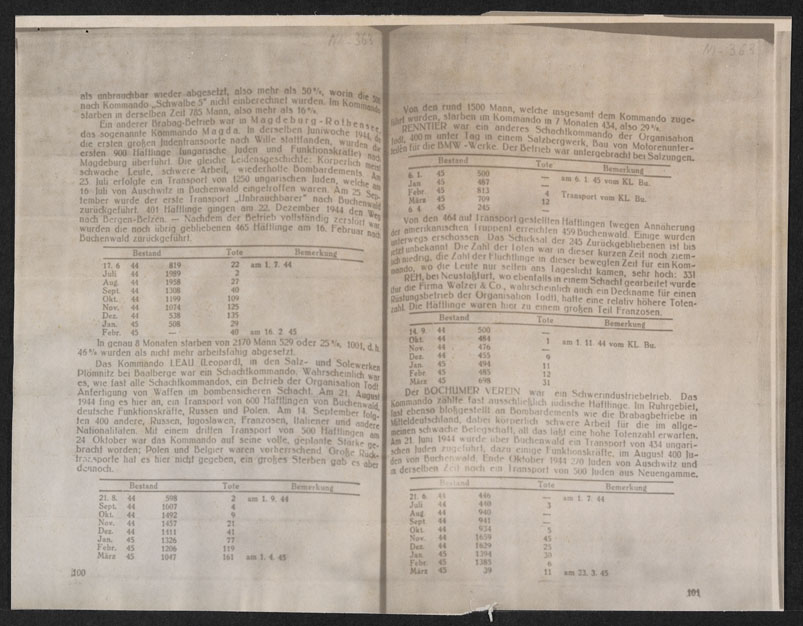 als unbrauchbar wieder abgesetzt, also mehr als 50%, worin die
nach Kommando „Schwalbe 5" nicht einberechnet wurden. Im Kommando
starben in derselben Zeit 785 Mann, also mehr als 16%.
Ein anderer Brabag-Betrieb war in Magdeburg-Rothensee
das sogenannte Kommando Magda. In derselben Juniwoche 1944, da
die ersten großen Judentransporte nach Wille stattfanden, wurden die
ersten 900 Häftlinge (ungarische Juden und Funktionskräfte) nach
Magdeburg überführt. Die gleiche Leidensgeschichte: Körperlich meist
schwache Leute, schwere Arbeit, wiederholte Bombardements. Am
25. Juli erfolgte ein Transport von 1250 ungarischen Juden, welche am
16. Juli von Auschwitz in Buchenwald eingetroffen waren. Am 25. Sep-
tember wurde der erste Transport „Unbrauchbarer" nach Buchenwald
zurückgeführt. 401 Häftlinge gingen am 22. Dezember 1944 den Weg
nach Bergen-Belzen. — Nachdem der Betrieb vollständig zerstört war,
wurden die noch übrig gebliebenen 465 Häftlinge am 16. Februar nach
Buchenwald zurückgeführt.
Bestand Tote Bemerkung
17. 6 44 819 22 am 1. 7. 44
Juli 44 1989 2
Aug. 44 1958 27
Sept. 44 1308 40
Okt. 44 1199 109
Nov. 44 1074 125
Dez. 44 538 135
Jan. 45 508 29
Febr. 45 — 40 am 16. 2 45
In genau 8 Monaten starben von 2170 Mann 529 oder 25%, 1001, d. h.
46% wurden als nicht mehr arbeitsfähig abgesetzt.
Das Kommando LEAU (Leopard), in den Salz- und Solewerken
Plömnitz bei Baalberge war ein Schachtkommando. Wahrscheinlich war
es, wie fast alle Schachtkommandos, ein Betrieb der Organisation Todt
Anfertigung von Waffen im bombensicheren Schacht. Am 21. August
1944 fing es hier an, ein Transport von 600 Häftlingen von Buchenwald,
deutsche Funktionskräfte, Russen und Polen. Am 14. September folg-
ten 400 andere, Russen, Jugoslawen, Franzosen, Italiener und andere
Nationalitäten. Mit einem dritten Transport von 500 Häftlingen am
24 Oktober war das Kommando auf seine volle, geplante Stärke ge-
bracht worden; Polen und Belgier waren vorherrschend Große Rück-
transporte hat es hier nicht gegeben, ein großes Sterben gab es aber
dennoch.
Bestand Tote Bemerkung
21. 8. 44 598 2 am 1. 9. 44
Sept. 44 1007 4
Okt. 44 1492 9
Nov. 44 1457 21
Dez. 44 1411 41
Jan. 45 1326 77
Febr. 45 1206 119
März 45 1047 161 am 1. 4. 45
100
Von den rund 1500 Mann, welche insgesamt dem Kommando zuge-
führt wurden, starben im Kommando in 7 Monaten 434, also 29%.
RENNTIER war ein anderes Schachtkommando der Organisation
Todt, 400 m unter Tag in einem Salzbergwerk, Bau von Motorenunter-
teilen für die BMW-Werke. Der Betrieb war untergebracht bei Salzungen.
Bestand Tote Bemerkung
6. 1. 45 500 — am 6. 1. 45 vom KL. Bu.
Jan. 45 487 —
Febr. 45 813 4 Transport vom KL. Bu.
März 45 709 12
6. 4. 45 245 —
Von den 464 auf Transport gestellten Häftlingen (wegen Annäherung
der amerikanischen Truppen) erreichten 459 Buchenwald. Einige wurden
unterwegs erschossen. Das Schicksal der 245 Zurückgebliebenen ist bis
jetzt unbekannt Die Zahl der Toten war in dieser kurzen Zeit noch ziem-
lich niedrig, die Zahl der Flüchtlinge in dieser bewegten Zeit für ein Kom-
mando, wo die Leute nur selten ans Tageslicht kamen, sehr hoch: 331
REH, bei Neustaßfurt, wo ebenfalls in einem Schacht gearbeitet wurde
für die Firma Walzer & Co., wahrscheinlich auch ein Deckname für einen
Rüstungsbetrieb der Organisation Todt, hatte eine relativ höhere Toten-
zahl. Die Häftlinge waren hier zu einem großen Teil Franzosen.
Bestand Tote Bemerkung
14. 9. 44 500 —
Okt. 44 484 1 am 1. 11. 44 vom KL. Bu.
Nov. 44 476 —
Dez. 44 455 9
Jan. 45 494 11
Febr. 45 485 12
März 45 698 31
Der BOCHUMER VEREIN war ein Schwerindustriebetrieb. Das
Kommando zählte fast ausschließlich jüdische Häftlinge. Im Ruhrgebiet,
fast ebenso bloßgestellt an Bombardements wie die Brabagbetriebe in
Mitteldeutschland, dabei körperlich schwere Arbeit für die im allge-
meinen schwache Belegschaft, all das läßt eine hohe Totenzahl erwarten.
Am 21. Juni 1944 wurde über Buchenwald ein Transport von 434 ungari-
schen Juden zugeführt, dazu einige Funktionskräfte, im August 400 Ju-
den von Buchenwald. Ende Oktober 1944 220 Juden von Auschwitz und
in derselben Zeit noch ein Transport von 500 Juden aus Neuengamme.
Bestand Tote Bemerkung
21. 6. 44 446 — am 1. 7. 44
Juli 44 440 3
Aug. 44 940 —
Sept 44 941 —
Okt. 44 934 5
Nov. 44 1659 45
Dez. 44 1629 25
Jan. 45 1394 30
Febr. 45 1385 6
März 45 39 11 am 23. 3. 45
101